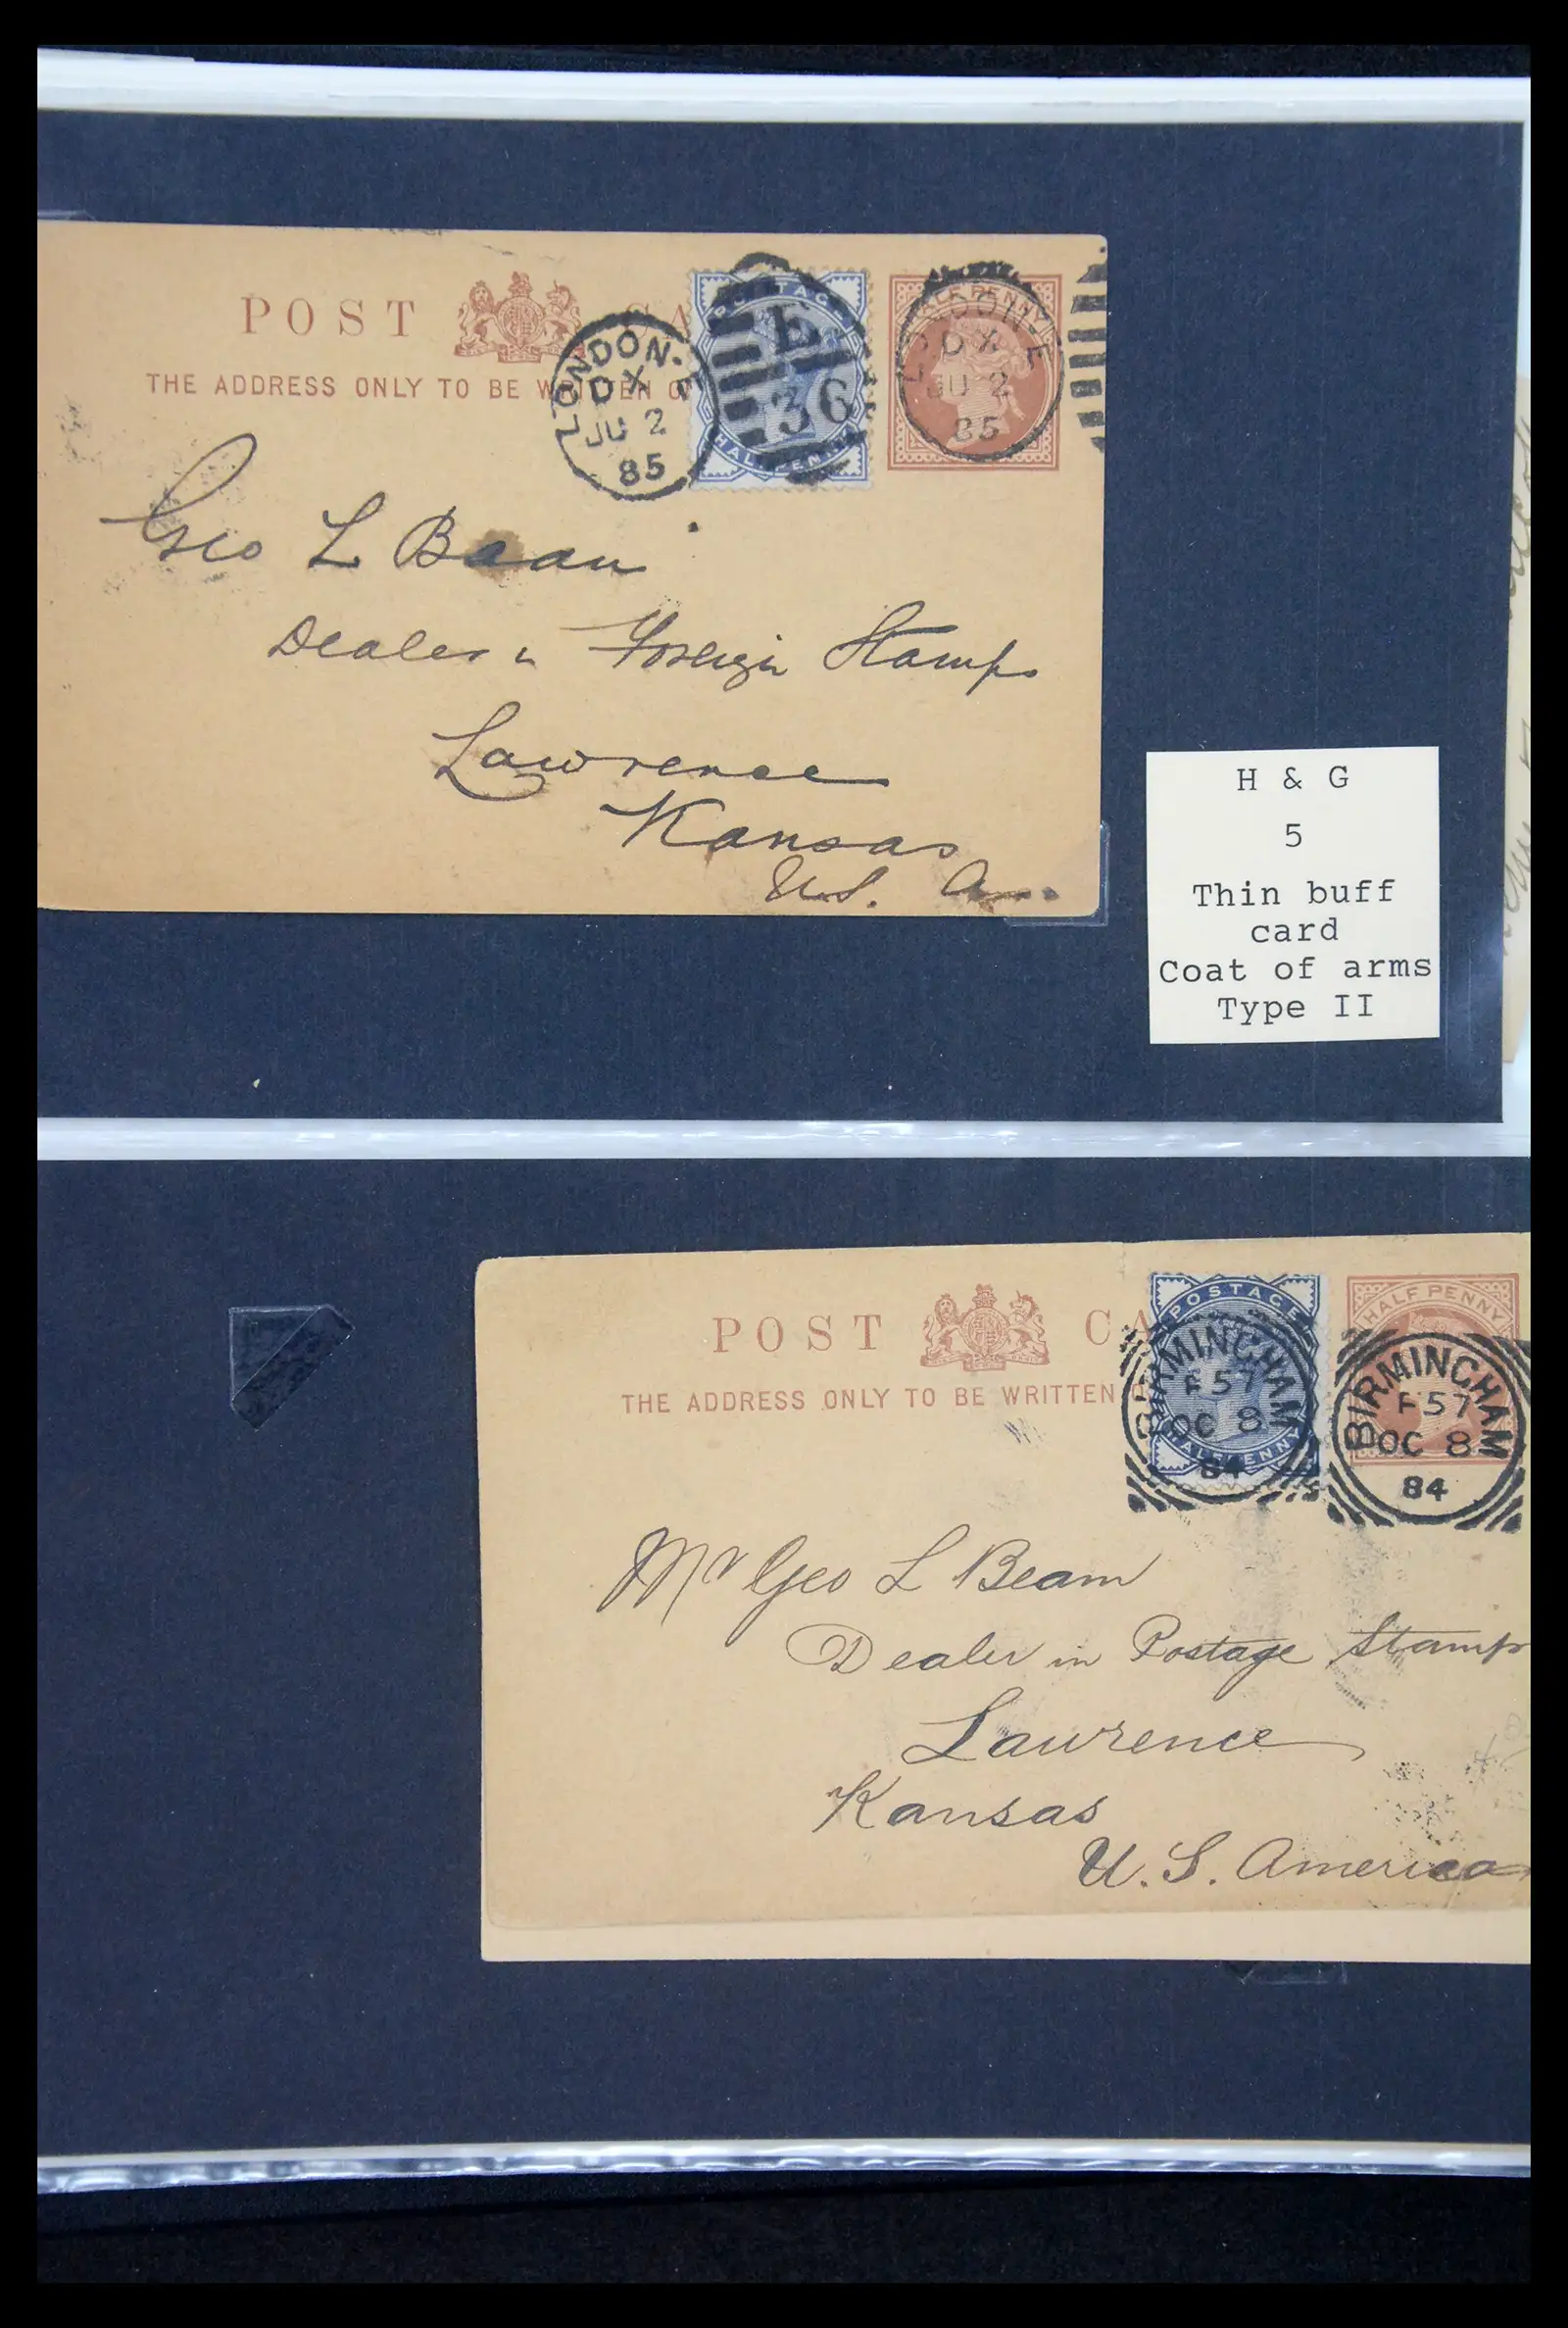 POST CA
THE ADDRESS ONLY TO BE WRITTEN O
LONDON. E
DX
JU 2
85
POSTAGE
HALFPENNY
E
36
HALF PENNY
LONDON. E
DX
JU 2
85
Geo L Baan
Dealer in Foreign Stamps
Lawrence
Kansas
U.S. A.
H & G
5
Thin buff
card
Coat of arms
Type II
POST CA
THE ADDRESS ONLY TO BE WRITTEN O
POSTAGE
HALFPENNY
BIRMINGHAM
F57
OC 8
84
HALF PENNY
BIRMINGHAM
F57
OC 8
84
Mr Geo L Beam
Dealer in Postage Stamps
Lawrence
Kansas
U.S. America